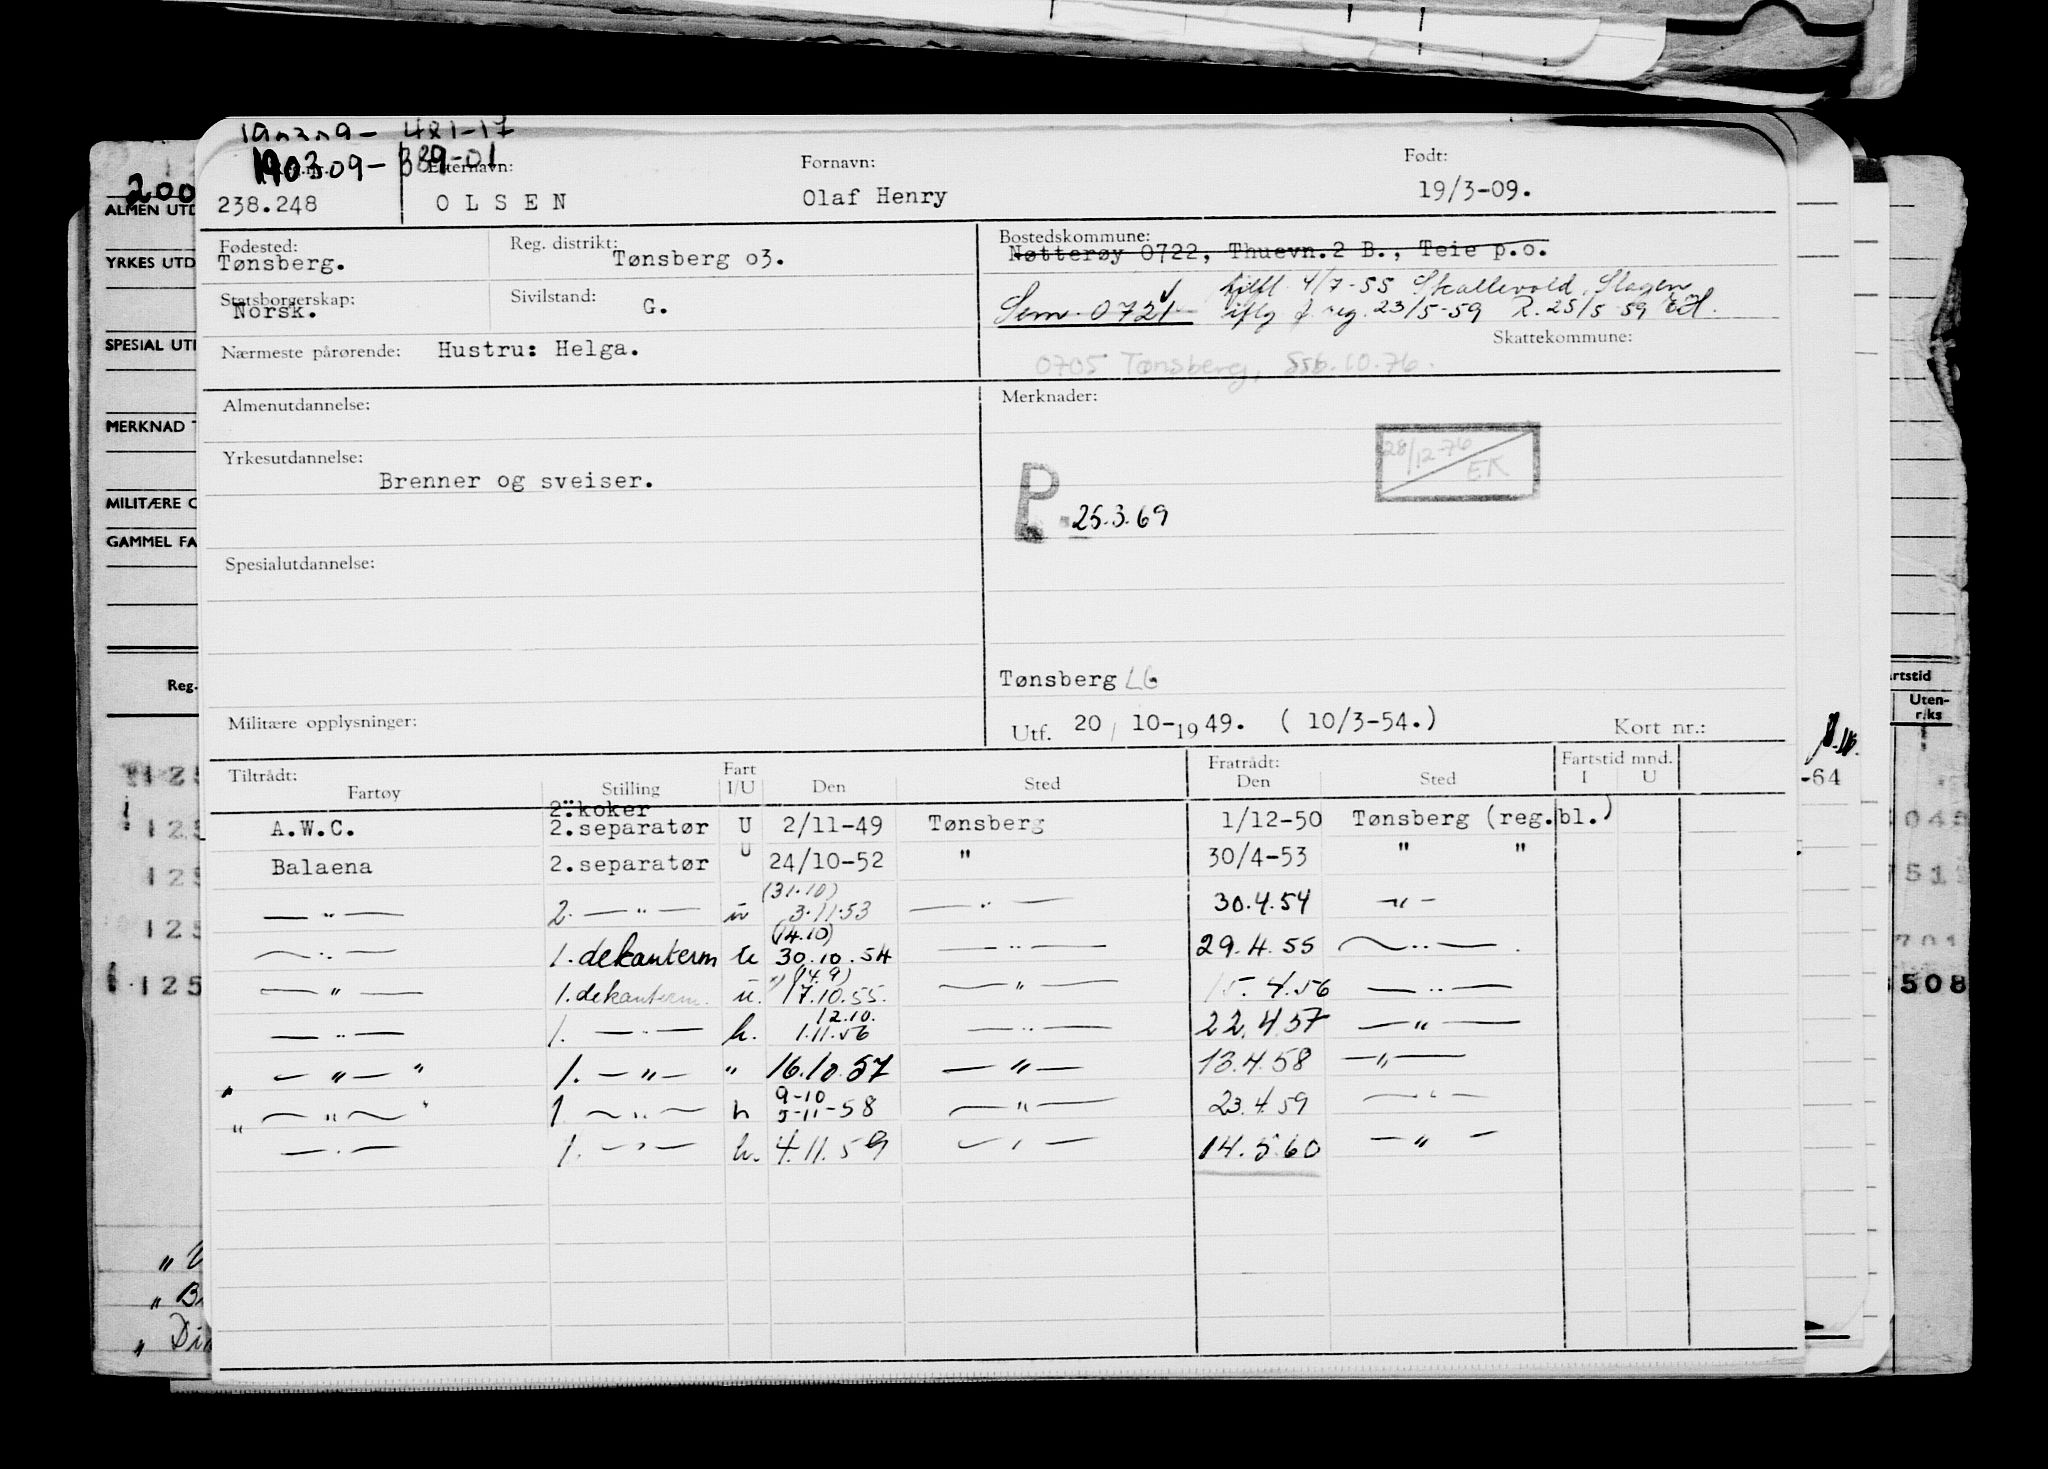 190309- 389-01
Etternavn: Fornavn: Født:
238.248 OLSEN Olaf Henry 19/3-09.
Fødested: Reg. distrikt: Bostedskommune:
Tønsberg. Tønsberg o3. Nøtterøy 0722, Thuevn.2 B., Teie p.o.
tilfl. 4/7-55 Skallevold, Slagen
Statsborgerskap: Sivilstand: Sem 0721 iflg f. reg. 23/5-59 R. 25/5-59
Norsk. G.
Nærmeste pårørende: Hustru: Helga. Skattekommune:
0705 Tønsberg, Ssb. 10.76.
Almenutdannelse: Merknader:
28/12-76 EK
Yrkesutdannelse:
Brenner og sveiser.
P. 25.3.69
Spesialutdannelse:
Tønsberg LG
Militære opplysninger: Utf. 20/10-1949. (10/3-54.) Kort nr.:
Tiltrådt: Fart Fratrådt: Fartstid mnd.
Fartøy Stilling I/U Den Sted Den Sted I U
2. koker
A.W.C. 2.separatør U 2/11-49 Tønsberg 1/12-50 Tønsberg (reg.bl.)
Balaena 2.separatør U 24/10-52 " 30/4-53 " "
(31.10)
— " — 2. — " — u 3.11.53 — " — 30.4.54 — " —
(14.10)
— " — 1. dekanterm u 30.10.54 — " — 29.4.55 — " —
(14.9)
— " — 1. dekanterm. u. 17.10.55. — " — 15.4.56 — " —
12.10.
— " — 1. — " — u. 1.11.56 — " — 22.4.57 — " —
" — " — " 1. — " — " 16.10.57 — " — 13.4.58 — " —
9-10
" — " — " 1. — " — u 5-11-58 — " — 23.4.59 — " —
— " — 1. — " — u. 4.11.59 — " — 14.5.60 — " —
200
ALMEN UTD
YRKES UTD
SPESIAL UT
MERKNAD
MILITÆRE
GAMMEL FA
Reg.
125
125
125
125
125
" Di
rtstid
Uten-
riks
-64
508